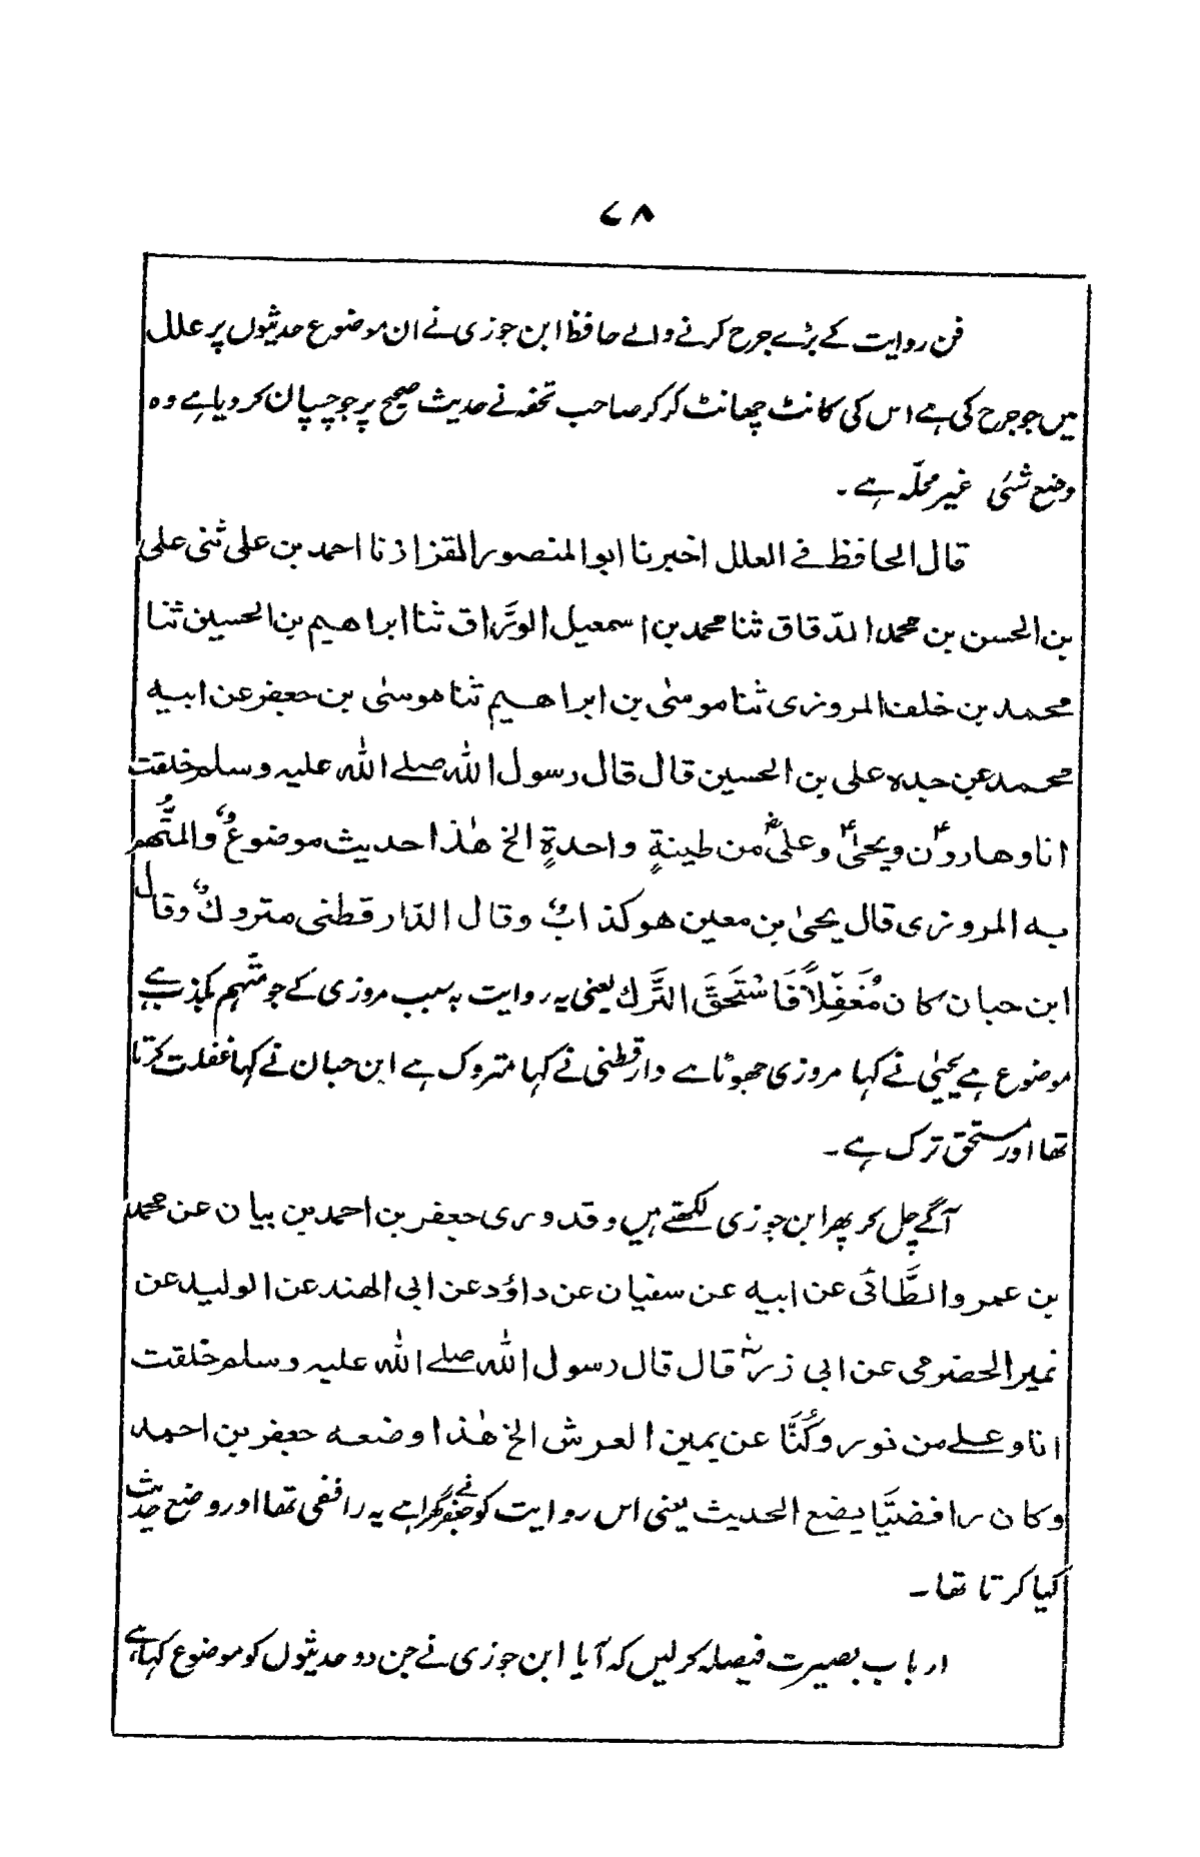 ۷۸
فن روایت کے بڑے جرح کرنے والے حافظ ابن جوزی نے ان موضوع حدیثوں پر علل
میں جو جرح کی ہے اس کی کانٹ چھانٹ کر کر صاحب تحفہ نے حدیث صحیح پر جو چسپاں کر دیا ہے وہ
وضع شئی غیر محلّہ ہے۔
قال الحافظ فے العلل اخبرنا ابو المنصور القزاز نا احمد بن علی ثنی علی
بن الحسن بن محمد الدّقاق ثنا محمد بن اسمعیل الورّاق ثنا ابراھیم بن الحسین ثنا
محمد بن خلف المروزی ثنا موسیٰ بن ابراھیم ثنا موسیٰ بن جعفر عن ابیہ
محمد عن جدہ علی بن الحسین قال قال رسول اللہ صلے اللہ علیہ وسلم خلقت
انا وھارونؑ ویحیٰؑ وعلیؓ من طینةٍ واحدةٍ الخ ھٰذا حدیث موضوعٌ والمتّھم
بہ المروزی قال یحیٰ بن معین ھو کذابٌ وقال الدّارقطنی متروکٌ وقال
ابن حبان کان مُغَفّلاً فَاسْتَحَقَّ التَّرك یعنی یہ روایت بہ سبب مروزی کے جو متّہم بکذب ہے
موضوع ہے یحیٰی نے کہا مروزی جھوٹا ہے دارقطنی نے کہا متروک ہے ابن حبان نے کہا غفلت کرتا
تھا اور مستحق ترک ہے۔
آگے چل کر پھر ابن جوزی لکھتے ہیں وقد وری جعفر بن احمد بن بیان عن محمد
بن عمر والطَّائی عن ابیہ عن سفیان عن داؤد عن ابی الھند عن الولید عن
نمیر الحضرمی عن ابی ذرؓ قال قال رسول اللہ صلے اللہ علیہ وسلم خلقت
انا وعلے من نور وکُنَّا عن یمین العرش الخ ھٰذا وضعہ جعفر بن احمد
وکان رافضیًا یضع الحدیث یعنی اس روایت کو جعفر نے گھڑا ہے یہ رافضی تھا اور وضع حدیث
کیا کرتا تھا۔
ارباب بصیرت فیصلہ کر لیں کہ آیا ابن جوزی نے جن دو حدیثوں کو موضوع کہا ہے